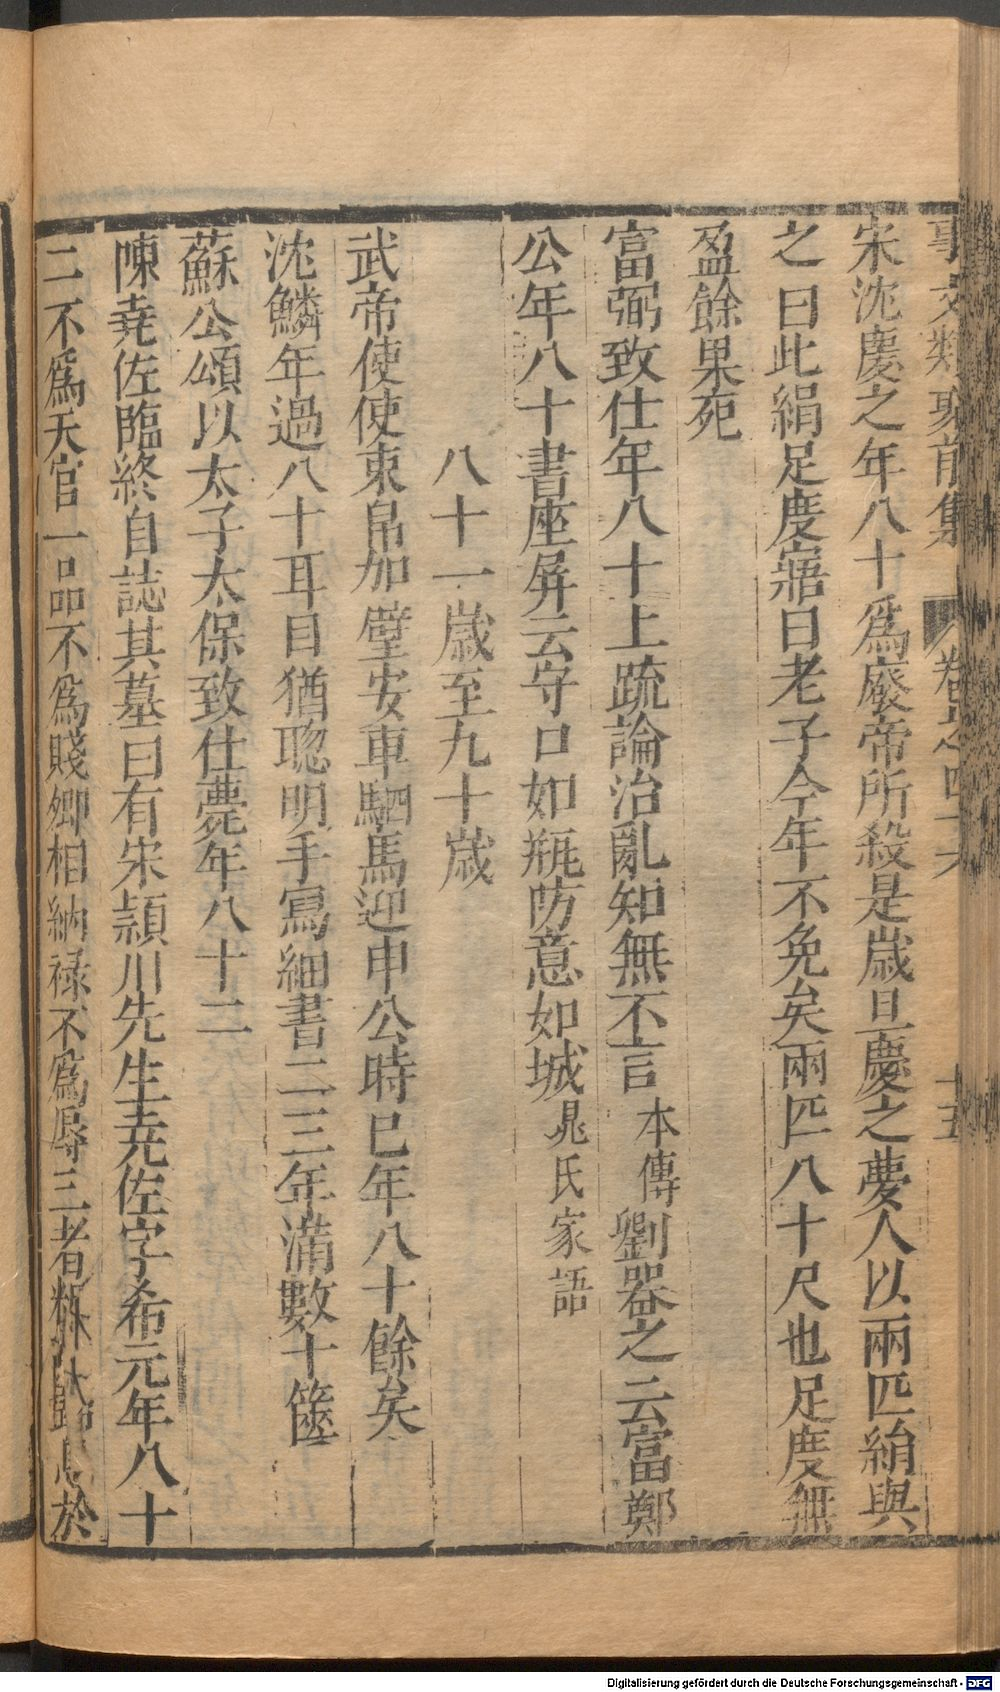 事文類聚前集 卷之四十六 十五
宋沈慶之年八十爲廢帝所殺是歲旦慶之夢人以兩匹絹與
之曰此絹足度寤曰老子今年不免矣兩匹八十尺也足度無
盈餘果死
富弼致仕年八十上疏論治亂知無不言本傳劉器之云富鄭
公年八十書座屏云守口如瓶防意如城晁氏家語
八十一歲至九十歲
武帝使使束帛加璧安車駟馬迎申公時已年八十餘矣
沈鱗年過八十耳目猶聰明手寫細書二三年滿數十篋
蘇公頌以太子太保致仕薨年八十二
陳堯佐臨終自誌其墓曰有宋潁川先生堯佐字希元年八十
二不爲夭官一品不爲賤卿相納祿不爲辱三者粗歸息於
Digitalisierung gefördert durch die Deutsche Forschungsgemeinschaft - DFG